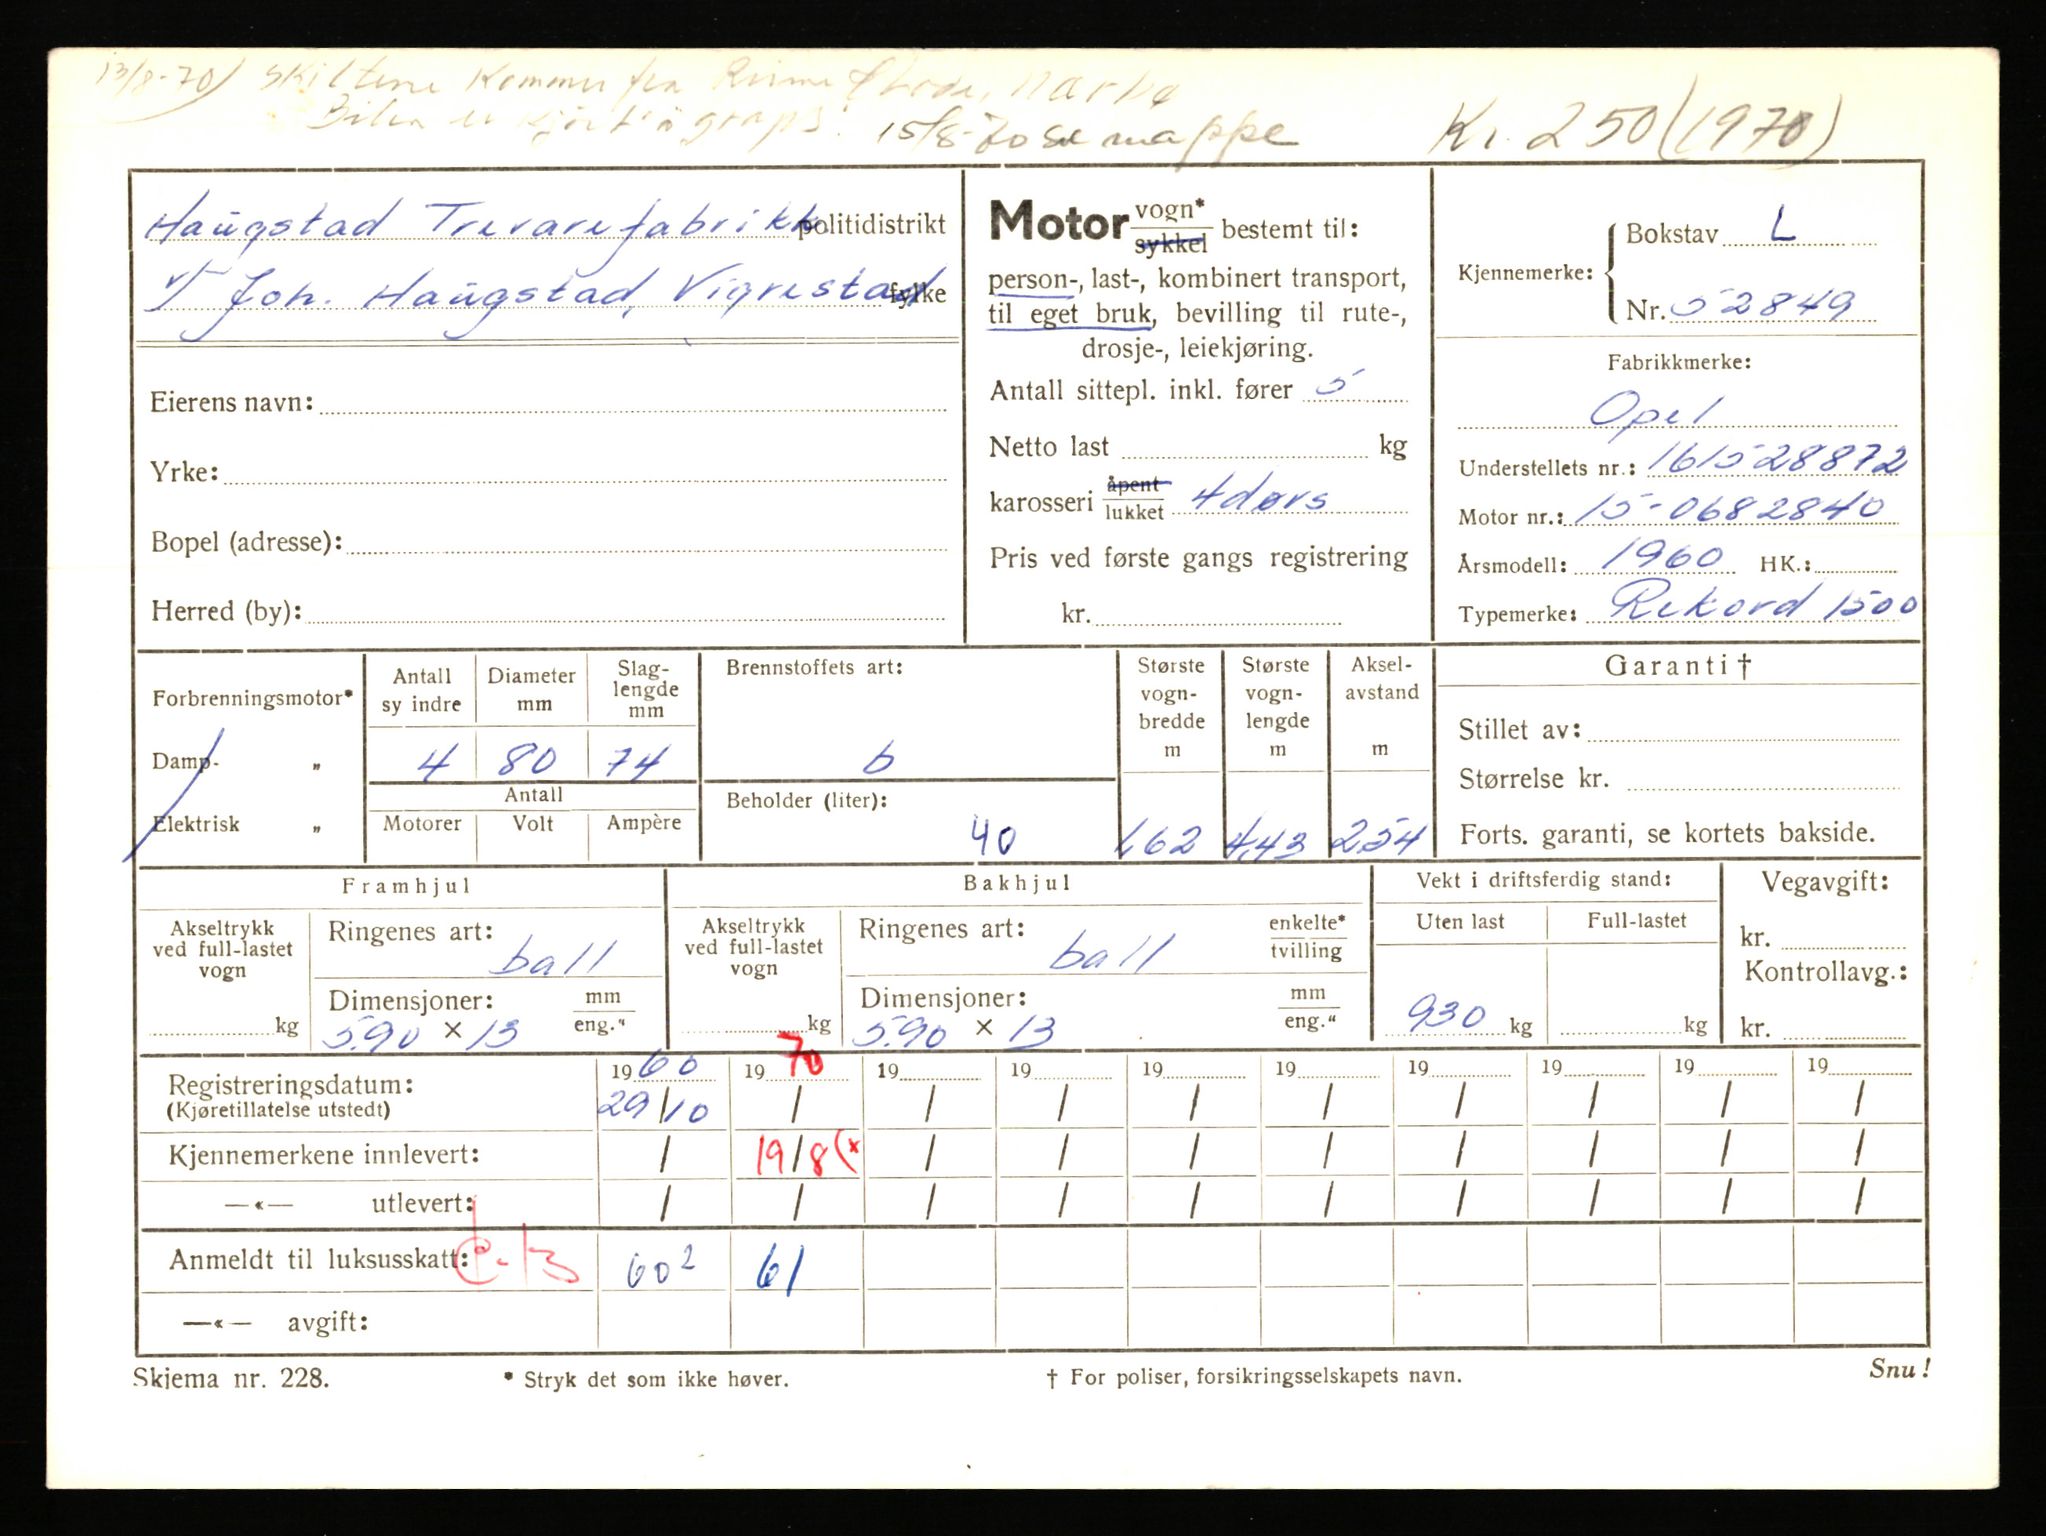 13/8-70) Skiltene kommer fra
Bilen er kjørt 15/8-70 se mappe
Kr. 250 (1970)
Haugstad Trevarefabrikk politidistrikt
v/ Joh. Haugstad, Vigrestad fylke
Eierens navn:
Yrke:
Bopel (adresse):
Herred (by):
Motor vogn* sykkel bestemt til:
person-, last-, kombinert transport,
til eget bruk, bevilling til rute-,
drosje-, leiekjøring.
Antall sittepl. inkl. fører 5
Netto last kg
karosseri åpent lukket 4dørs
Pris ved første gangs registrering
kr.
Kjennemerke: Bokstav L
Nr. 52849
Fabrikkmerke:
Opel
Understellets nr.: 161528872
Motor nr.: 15-0682840
Årsmodell: 1960 HK.:
Typemerke: Rekord 1500
Forbrenningsmotor*
Damp- „
Elektrisk „
Antall sy indre
Diameter mm
Slag-lengde mm
4 80 74
Antall
Motorer Volt Ampère
Brennstoffets art:
b
Beholder (liter):
40
Største vogn-bredde m
1,62
Største vogn-lengde m
4,43
Aksel-avstand m
2,54
Garanti †
Stillet av:
Størrelse kr.
Forts. garanti, se kortets bakside.
Framhjul
Akseltrykk ved full-lastet vogn
kg
Ringenes art: ball
Dimensjoner: mm eng."
5.90 × 13
Bakhjul
Akseltrykk ved full-lastet vogn
kg
Ringenes art: enkelte* tvilling
ball
Dimensjoner: mm eng."
5.90 × 13
Vekt i driftsferdig stand:
Uten last Full-lastet
930 kg kg
Vegavgift:
kr.
Kontrollavg.:
kr.
Registreringsdatum: 1960 1970 19 19 19 19 19 19 19 19
(Kjøretillatelse utstedt) 29/10 / / / / / / / / /
Kjennemerkene innlevert: / 19/8(* / / / / / / / /
—«— utlevert: / / / / / / / / / /
Anmeldt til luksusskatt: 60² 61
—«— avgift:
Skjema nr. 228.
* Stryk det som ikke høver.
† For poliser, forsikringsselskapets navn.
Snu!